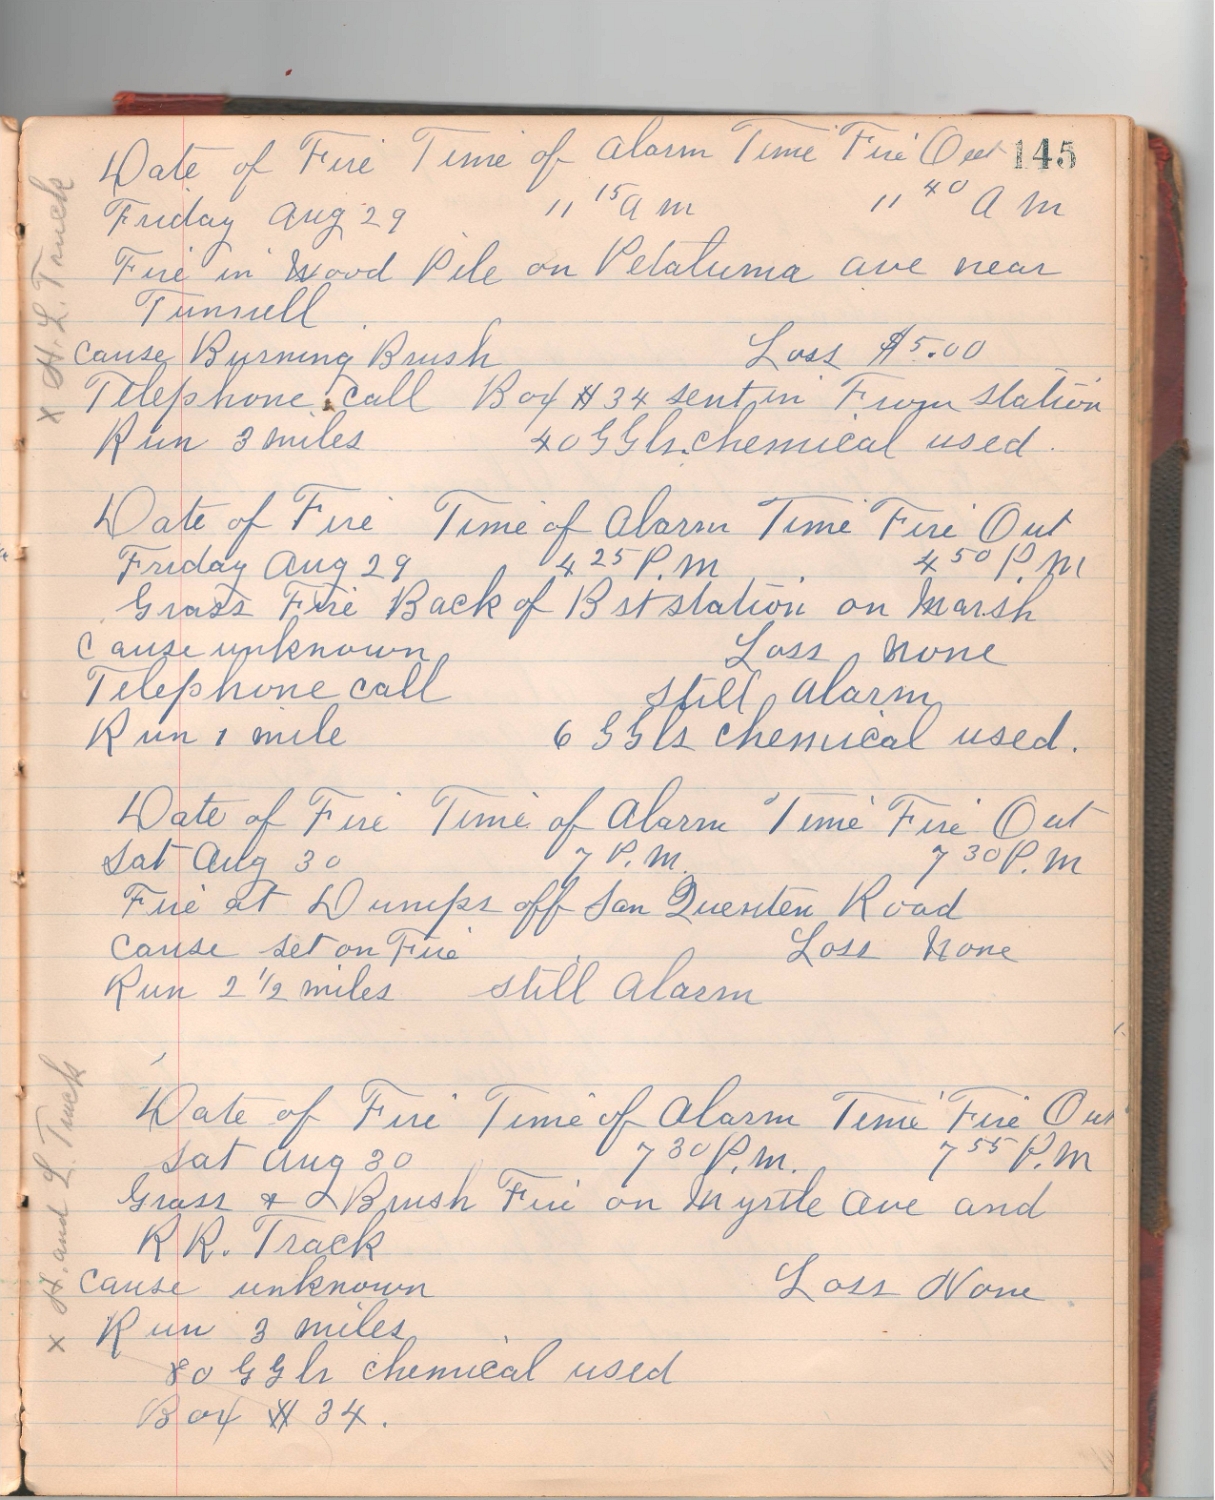 Date of Fire Time of Alarm Time Fire Out 145
Friday Aug 29 11 15 A m 11 40 A M
Fire in Wood Pile on Petaluma ave near
Tunnell
Cause Burning Brush Loss $5.00
Telephone call Box # 34 sent in From station
Run 3 miles 40 GGls. chemical used.
x H. L. Truck
Date of Fire Time of Alarm Time Fire Out
Friday Aug 29 4 25 P.M 4 50 P.M
Grass Fire Back of B st station on Marsh
Cause unknown Loss None
Telephone call still Alarm
Run 1 mile 6 GGls chemical used.
Date of Fire Time of Alarm Time Fire Out
Sat Aug 30 7 P.M. 7 30 P.M
Fire at Dumps off San Quenten Road
Cause set on Fire Loss None
Run 2 1/2 miles still Alarm
Date of Fire Time of Alarm Time Fire Out
Sat Aug 30 7 30 P.M. 7 55 P.M
Grass & Brush Fire on Myrtle Ave and
R R. Track
Cause unknown Loss None.
Run 3 miles
80 GGls chemical used
Box # 34.
x H. and L. Truck